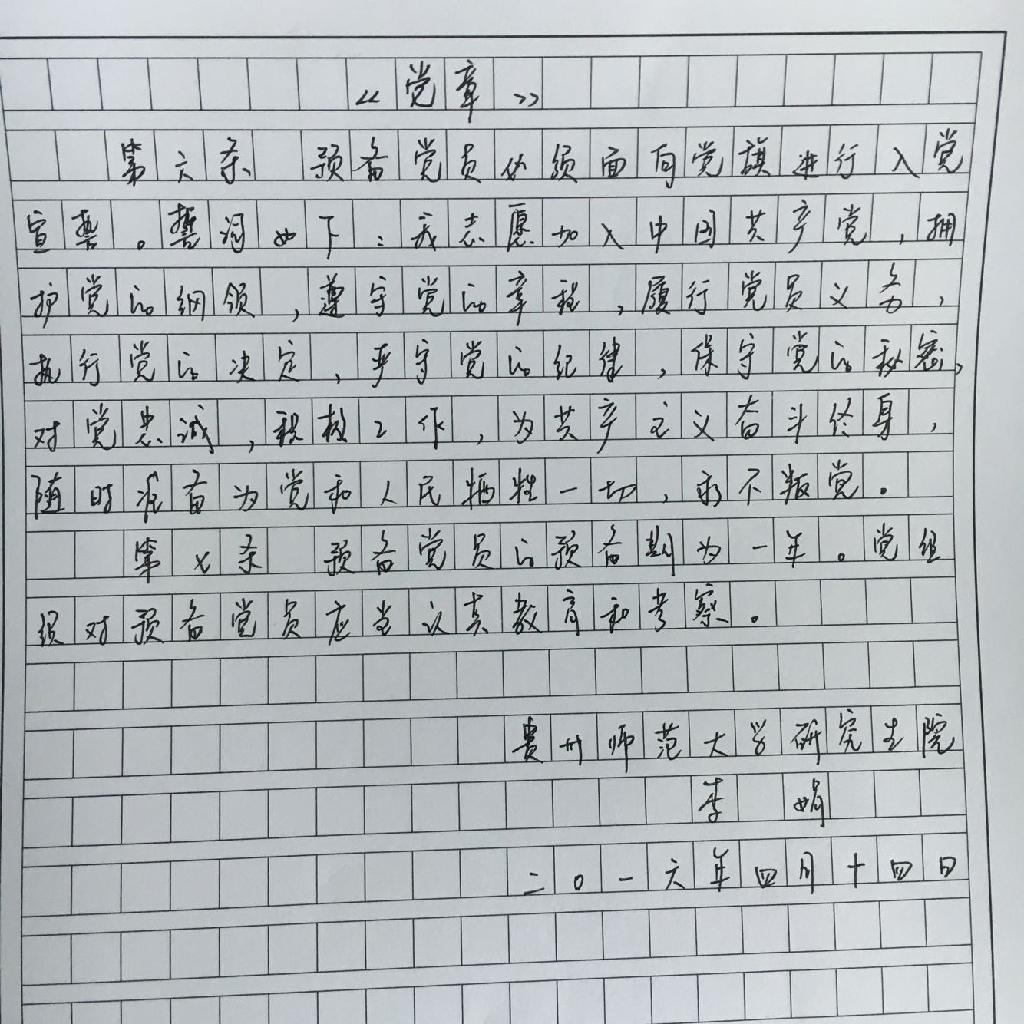 《党章》
第六条 预备党员必须面向党旗进行入党
宣誓。誓词如下：我志愿加入中国共产党，拥
护党的纲领，遵守党的章程，履行党员义务，
执行党的决定，严守党的纪律，保守党的秘密，
对党忠诚，积极工作，为共产主义奋斗终身，
随时准备为党和人民牺牲一切，永不叛党。
第七条 预备党员的预备期为一年。党组
织对预备党员应当认真教育和考察。
贵州师范大学研究生院
李 娟
二〇一六年四月十四日